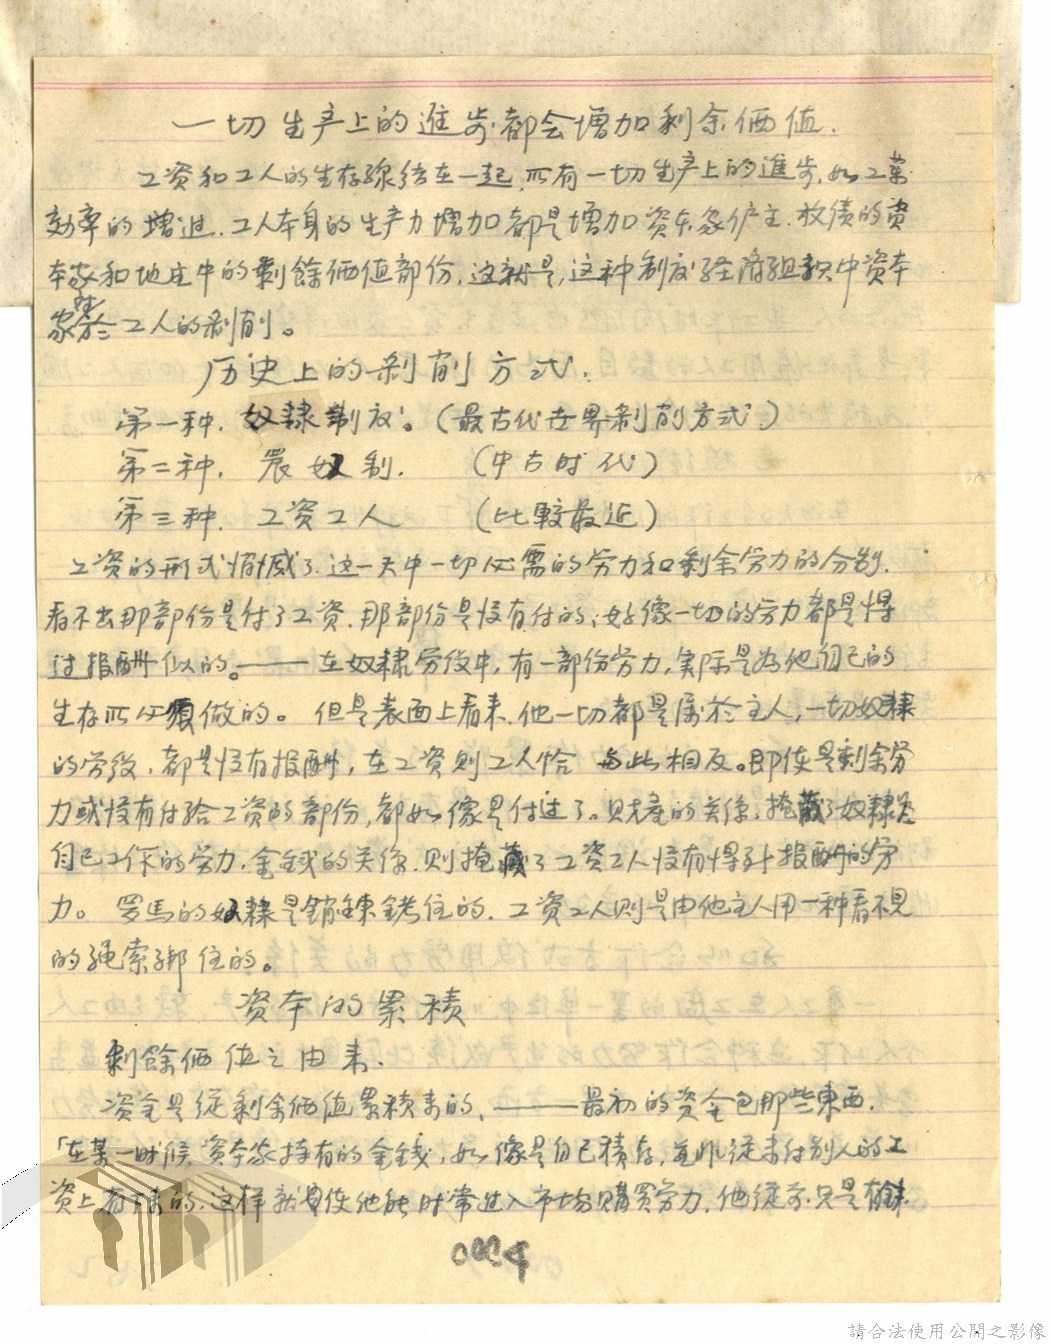 一切生产上的進步都会增加剩余価值.
工资和工人的生存線结在一起,所有一切生产上的進步,如工業
効率的增進.工人本身的生产力增加都是增加资本家僱主.放债的资
本家和地主中的剩餘価值部份,这就是,这种制度经濟組織中资本
家對於工人的剥削。
历史上的剥削方式.
第一种.奴隸制度。(最古代世界剥削方式)
第二种. 農奴制. (中古时代)
第三种. 工资工人 (比較最近)
工资的形式消滅了.这一天中一切必需的労力和剩余労力的分别.
看不出那部份是付了工资.那部份是没有付的,好像一切的労力都是得
过报酬似的。——在奴隸労役中,有一部份労力,实际是为他自己的
生存所必須做的。但是表面上看来.他一切都是属於主人,一切奴隸
的労役.都是没有报酬,在工资则工人恰与此相反。即使是剩余労
力或没有付给工资的部份,都如像是付过了。財產的关係.掩藏了奴隸为
自己工作的労力.金錢的关係.则掩藏了工资工人没有得到报酬的労
力。罗馬的奴隸是銷鍊銬住的.工资工人则是由他主人用一种看不見
的绳索綁住的。
资本的累積
剩餘価值之由来.
资金是從剩余価值累積来的.——最初的资金包那些東西.
「在某一时候,资本家持有的金錢,如像是自己積存,並非從未付别人的工
资上存下来的.这样就是使他能时常进入市場購買労力.他從前只是
0004
請合法使用公開之影像